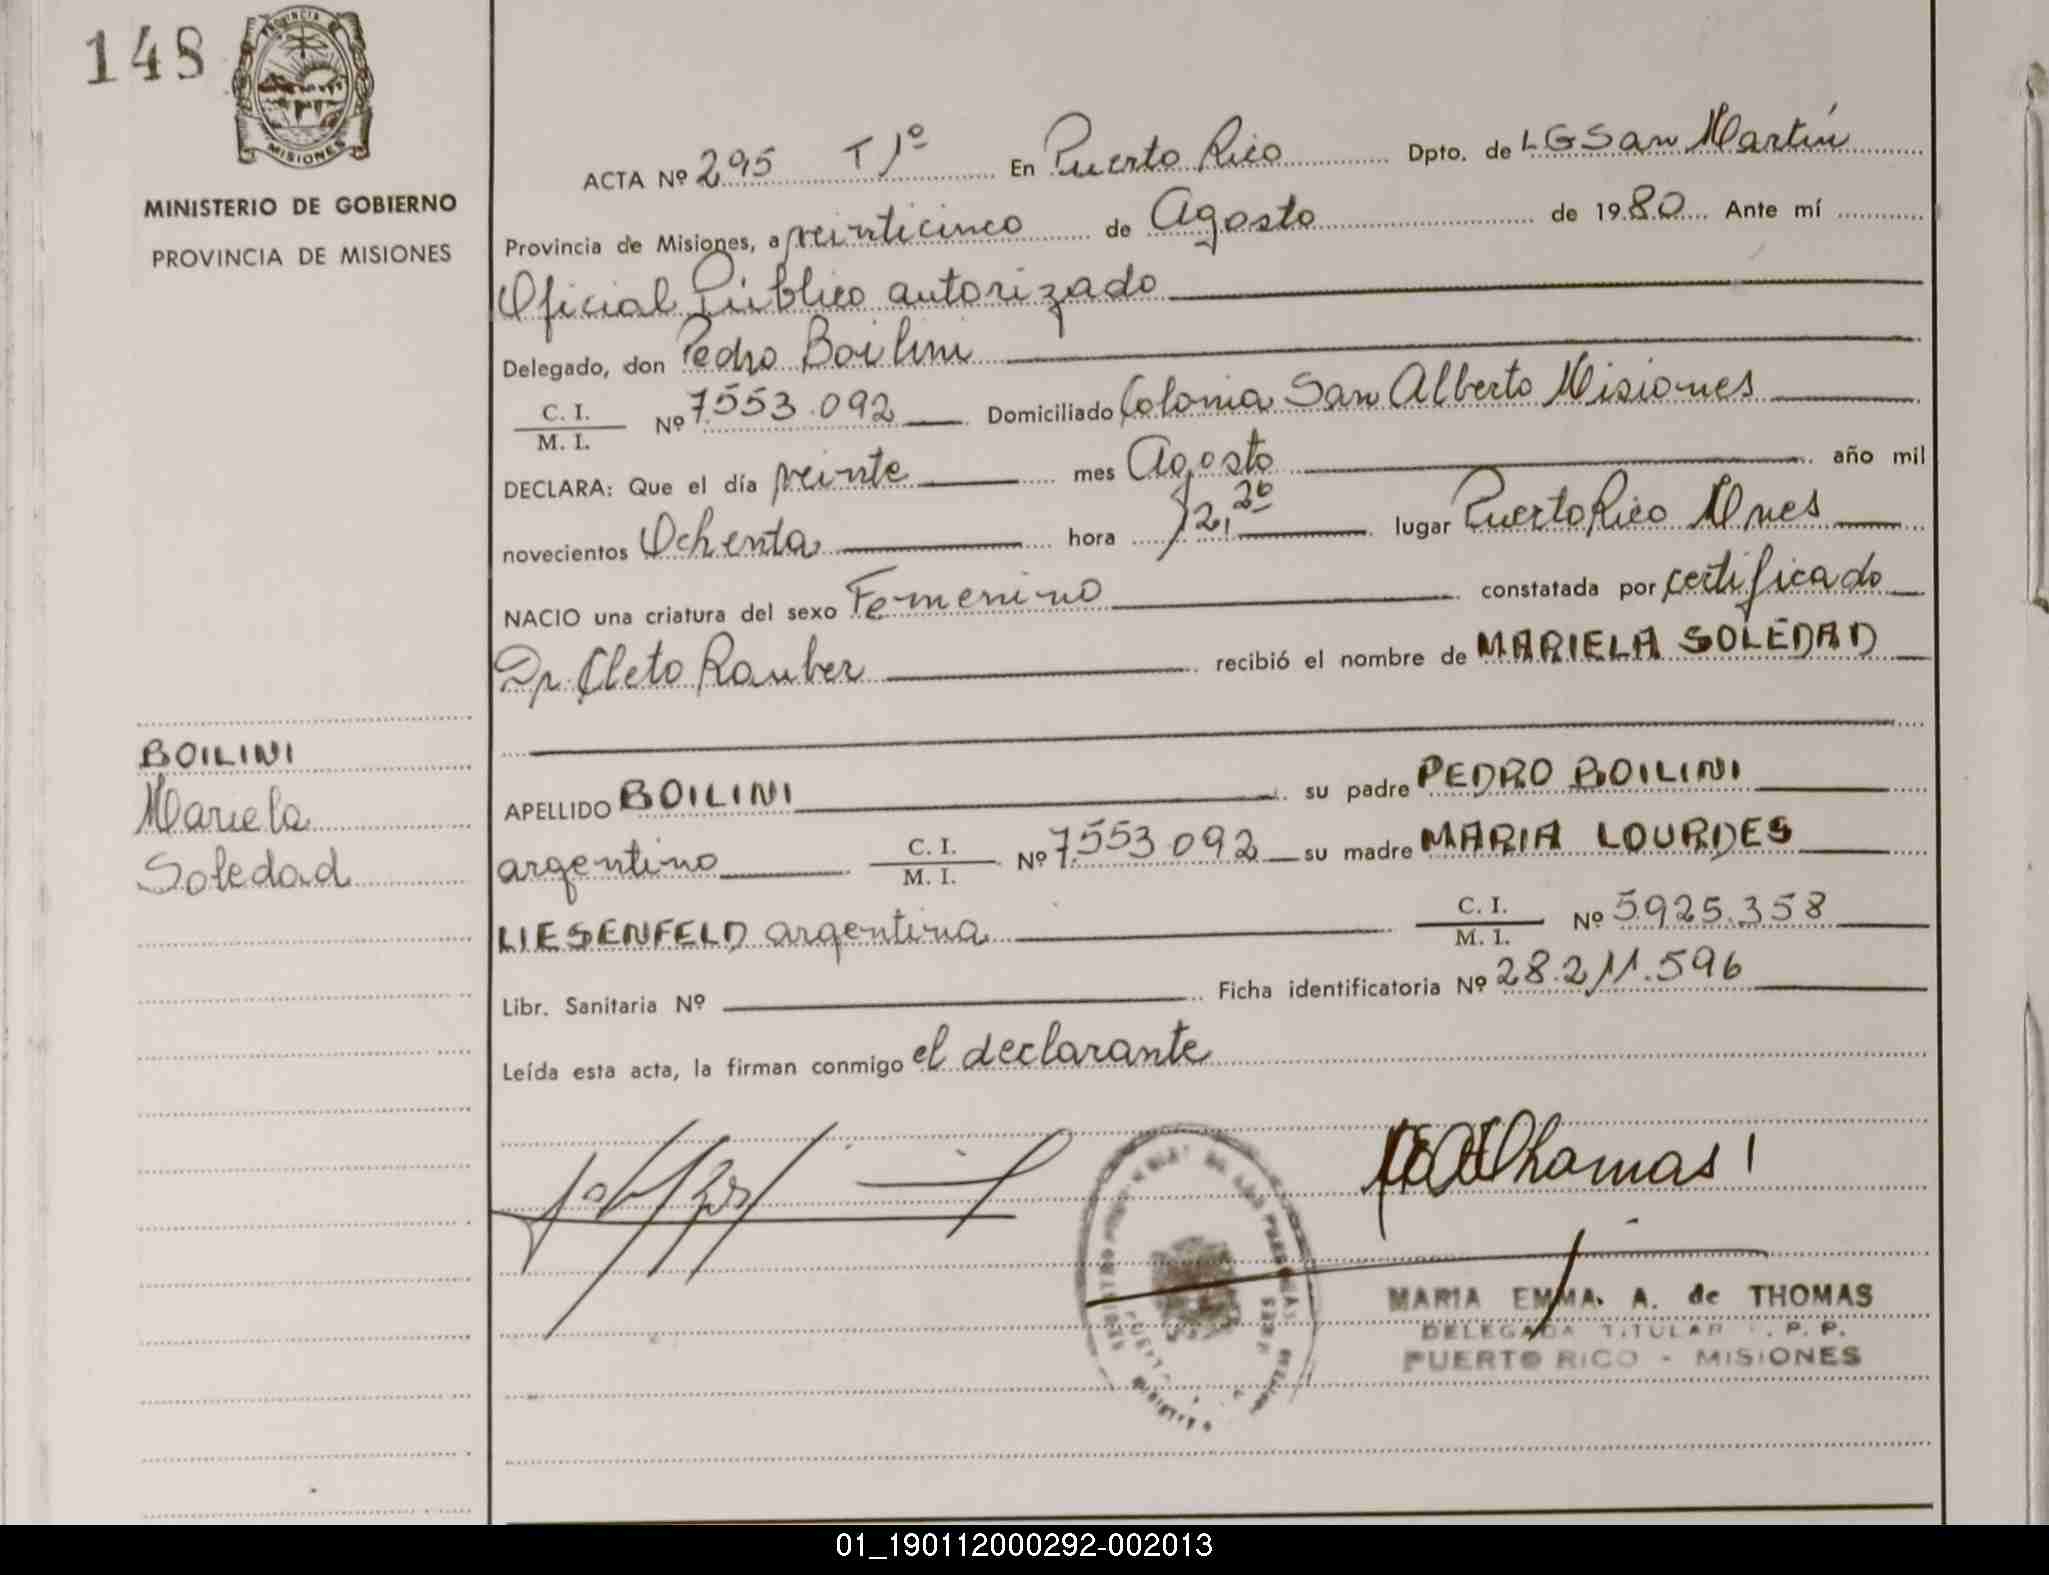 148
PROVINCIA DE
MISIONES
MINISTERIO DE GOBIERNO
PROVINCIA DE MISIONES
BOILINI
Mariela
Soledad
ACTA Nº 295 T 1º En Puerto Rico Dpto. de L G San Martín
Provincia de Misiones, a veinticinco de Agosto de 1980 Ante mí
Oficial Público autorizado
Delegado, don Pedro Boilini
C. I. / M. I. Nº 7.553.092 Domiciliado Colonia San Alberto Misiones
DECLARA: Que el día veinte mes Agosto año mil
novecientos Ochenta hora 12,20 lugar Puerto Rico Mnes
NACIO una criatura del sexo Femenino constatada por certificado
Dr. Cleto Rauber recibió el nombre de MARIELA SOLEDAD
APELLIDO BOILINI su padre PEDRO BOILINI
argentino C. I. / M. I. Nº 7.553.092 su madre MARIA LOURDES
LIESENFELD argentina C. I. / M. I. Nº 5.925.358
Libr. Sanitaria Nº Ficha identificatoria Nº 28.211.596
Leída esta acta, la firman conmigo el declarante
Thomas
MARIA EMMA. A. de THOMAS
DELEGADA TITULAR P. P.
PUERTO RICO - MISIONES
01_190112000292-002013